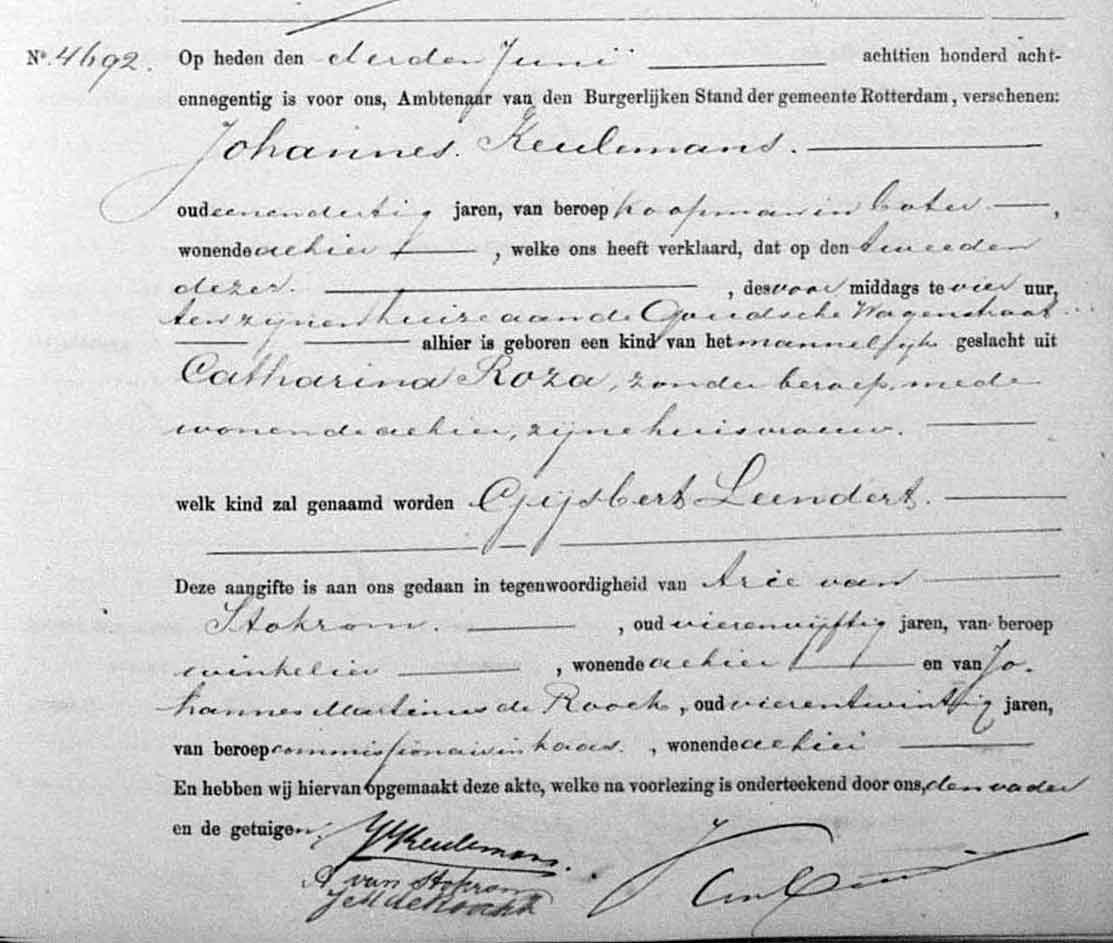 No. 4692. Op heden den derden Junij achttien honderd acht-
ennegentig is voor ons, Ambtenaar van den Burgerlijken Stand der gemeente Rotterdam, verschenen:
Johannes Keulemans.
oud eenendertig jaren, van beroep koopman in boter,
wonende alhier, welke ons heeft verklaard, dat op den tweeden
dezer, des voor middags te vier uur,
ten zijnen huize aan de Goudsche Wagenstraat
alhier is geboren een kind van het mannelijk geslacht uit
Catharina Roza, zonder beroep, mede
wonende alhier, zijne huisvrouw.
welk kind zal genaamd worden Gijsbert Leendert.
Deze aangifte is aan ons gedaan in tegenwoordigheid van Arie van
Stokrom, oud vierenvijftig jaren, van beroep
winkelier, wonende alhier en van Jo-
hannes Martinus de Roock, oud vierentwintig jaren,
van beroep commissionair in kaas, wonende alhier
En hebben wij hiervan opgemaakt deze akte, welke na voorlezing is onderteekend door ons, den vader
en de getuigen.
JKeulemans.
A van Stokrom
JM de Roock